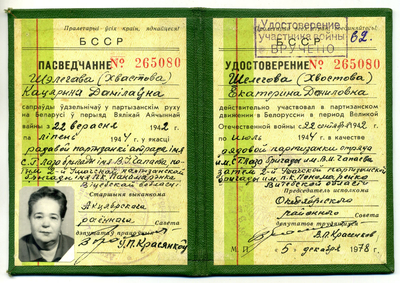 Пралетарыі ўсіх краін, яднайцеся!
БССР
ПАСВЕДЧАННЕ № 265080
Шэлегава (Хвастова)
Кацярына Данілаўна
сапраўды ўдзельнічаў у партызанскім руху
на Беларусі ў перыяд Вялікай Айчыннай
вайны з 22 верасня 1942 г.
па ліпень 1944 г. у якасці
радавой партызанкі атрада імя
С. Г. Лазо брыгады імя В. І. Чапаева
Віцебскай вобласці
Старшыня выканкома
Акцябрскага
раённага Савета
дэпутатаў працоўных
У. П. Красянкоў
Удостоверение
участника войны
ВРУЧЕНО
БССР
УДОСТОВЕРЕНИЕ № 265080
Шелегова (Хвостова)
Екатерина Даниловна
действительно участвовал в партизанском
движении в Белоруссии в период Великой
Отечественной войны с 22 сентября 1942 г.
по июль 1944 г. в качестве
рядовой партизанки отряда
им. С. Лазо бригады им. В. И. Чапаева
затем 2-й Ушачской партизанской
бригады им. П. К. Пономаренко
Витебской области
Председатель исполкома
Октябрьского
районного Совета
депутатов трудящихся
В. П. Красенков
М. П. 5 декабря 1978 г.